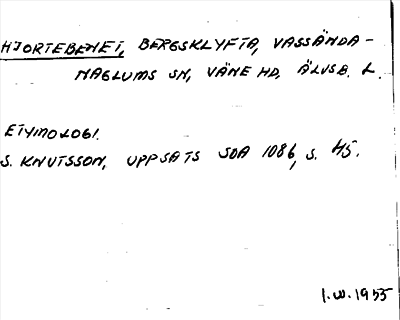 HJORTEBENET, BERGSKLYFTA, VASSÄNDA-
NAGLUMS SN, VÄNE HD, ÄLVSB. L.
ETYMOLOGI.
S. KNUTSSON, UPPSATS SOA 1086, S. 45.
I.W. 1955